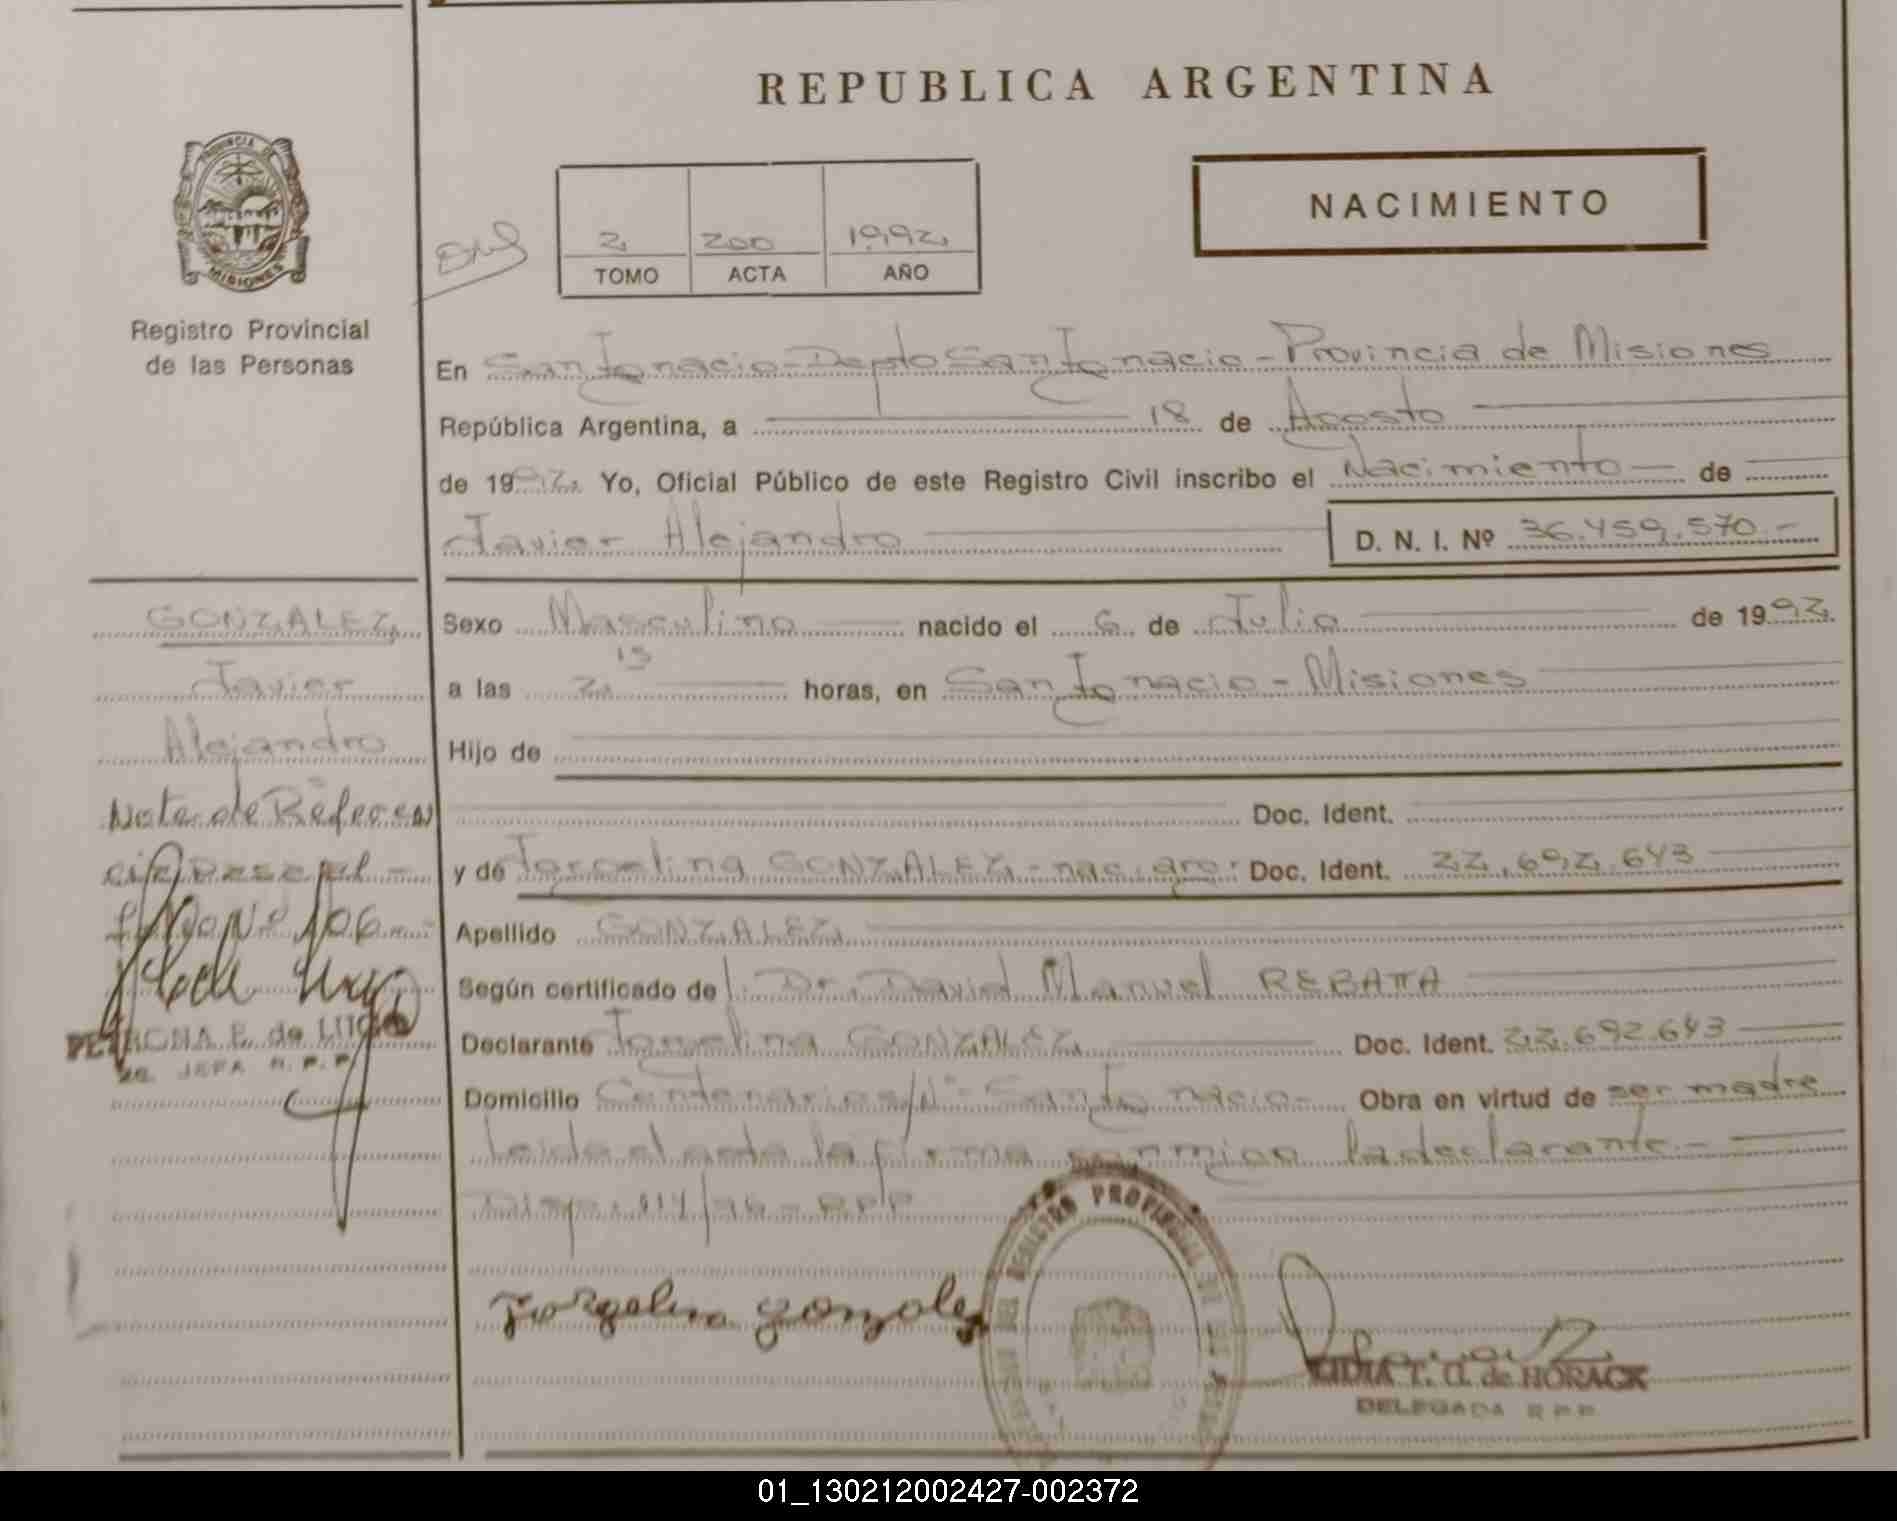 REPUBLICA ARGENTINA
PROVINCIA DE
MISIONES
Registro Provincial
de las Personas
2 200 1992
TOMO ACTA AÑO
NACIMIENTO
En San Ignacio - Depto San Ignacio - Provincia de Misiones
República Argentina, a 18 de Agosto
de 1992 Yo, Oficial Público de este Registro Civil inscribo el Nacimiento de
Javier Alejandro
D. N. I. Nº 36.459.570.-
GONZALEZ
Javier
Alejandro
Nota de Referen
cia
Nº 106
PETRONA E. de
JEFA R. P. P.
Sexo Masculino nacido el 6 de Julio de 1992
a las 2,15 horas, en San Ignacio - Misiones
Hijo de
Doc. Ident.
y de Jorgelina GONZALEZ - nac. arg. Doc. Ident. 22.692.643
Apellido GONZALEZ
Según certificado de Dr. David Manuel REBATTA
Declarante Jorgelina GONZALEZ Doc. Ident. 22.692.643
Domicilio Centenario s/Nº - San Ignacio - Obra en virtud de ser madre
Leida el acta la firma conmigo la declarante.-
Jorgelina gonzalez
REGISTRO PROVINCIAL DE LAS
LIDIA T. G. de HORACK
DELEGADA R P P
01_130212002427-002372